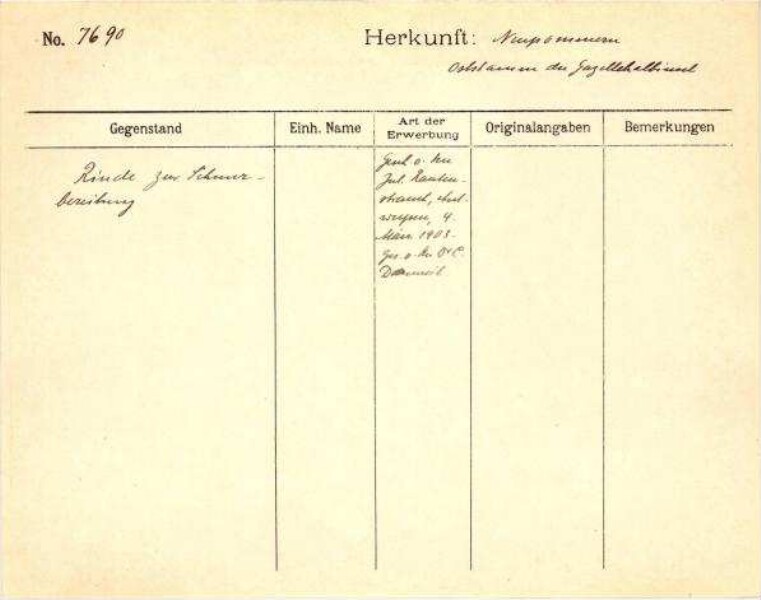 No. 7690
Herkunft: Neupommern
Oststamm der Gazellehalbinsel
Gegenstand
Einh. Name
Art der
Erwerbung
Originalangaben
Bemerkungen
Rinde zur Schnur-
bereitung
Gesch. v.
Jul. Rauten-
strauch,
4.
März 1903.
Ges. v.